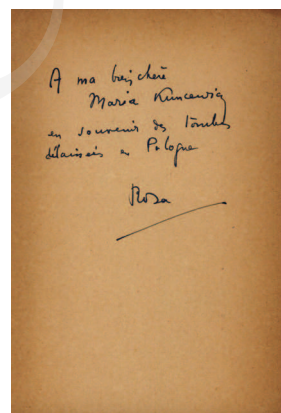 A ma très chère
Maria Kuncewicz
en souvenir des tombes
délaissées en Pologne
Rosa